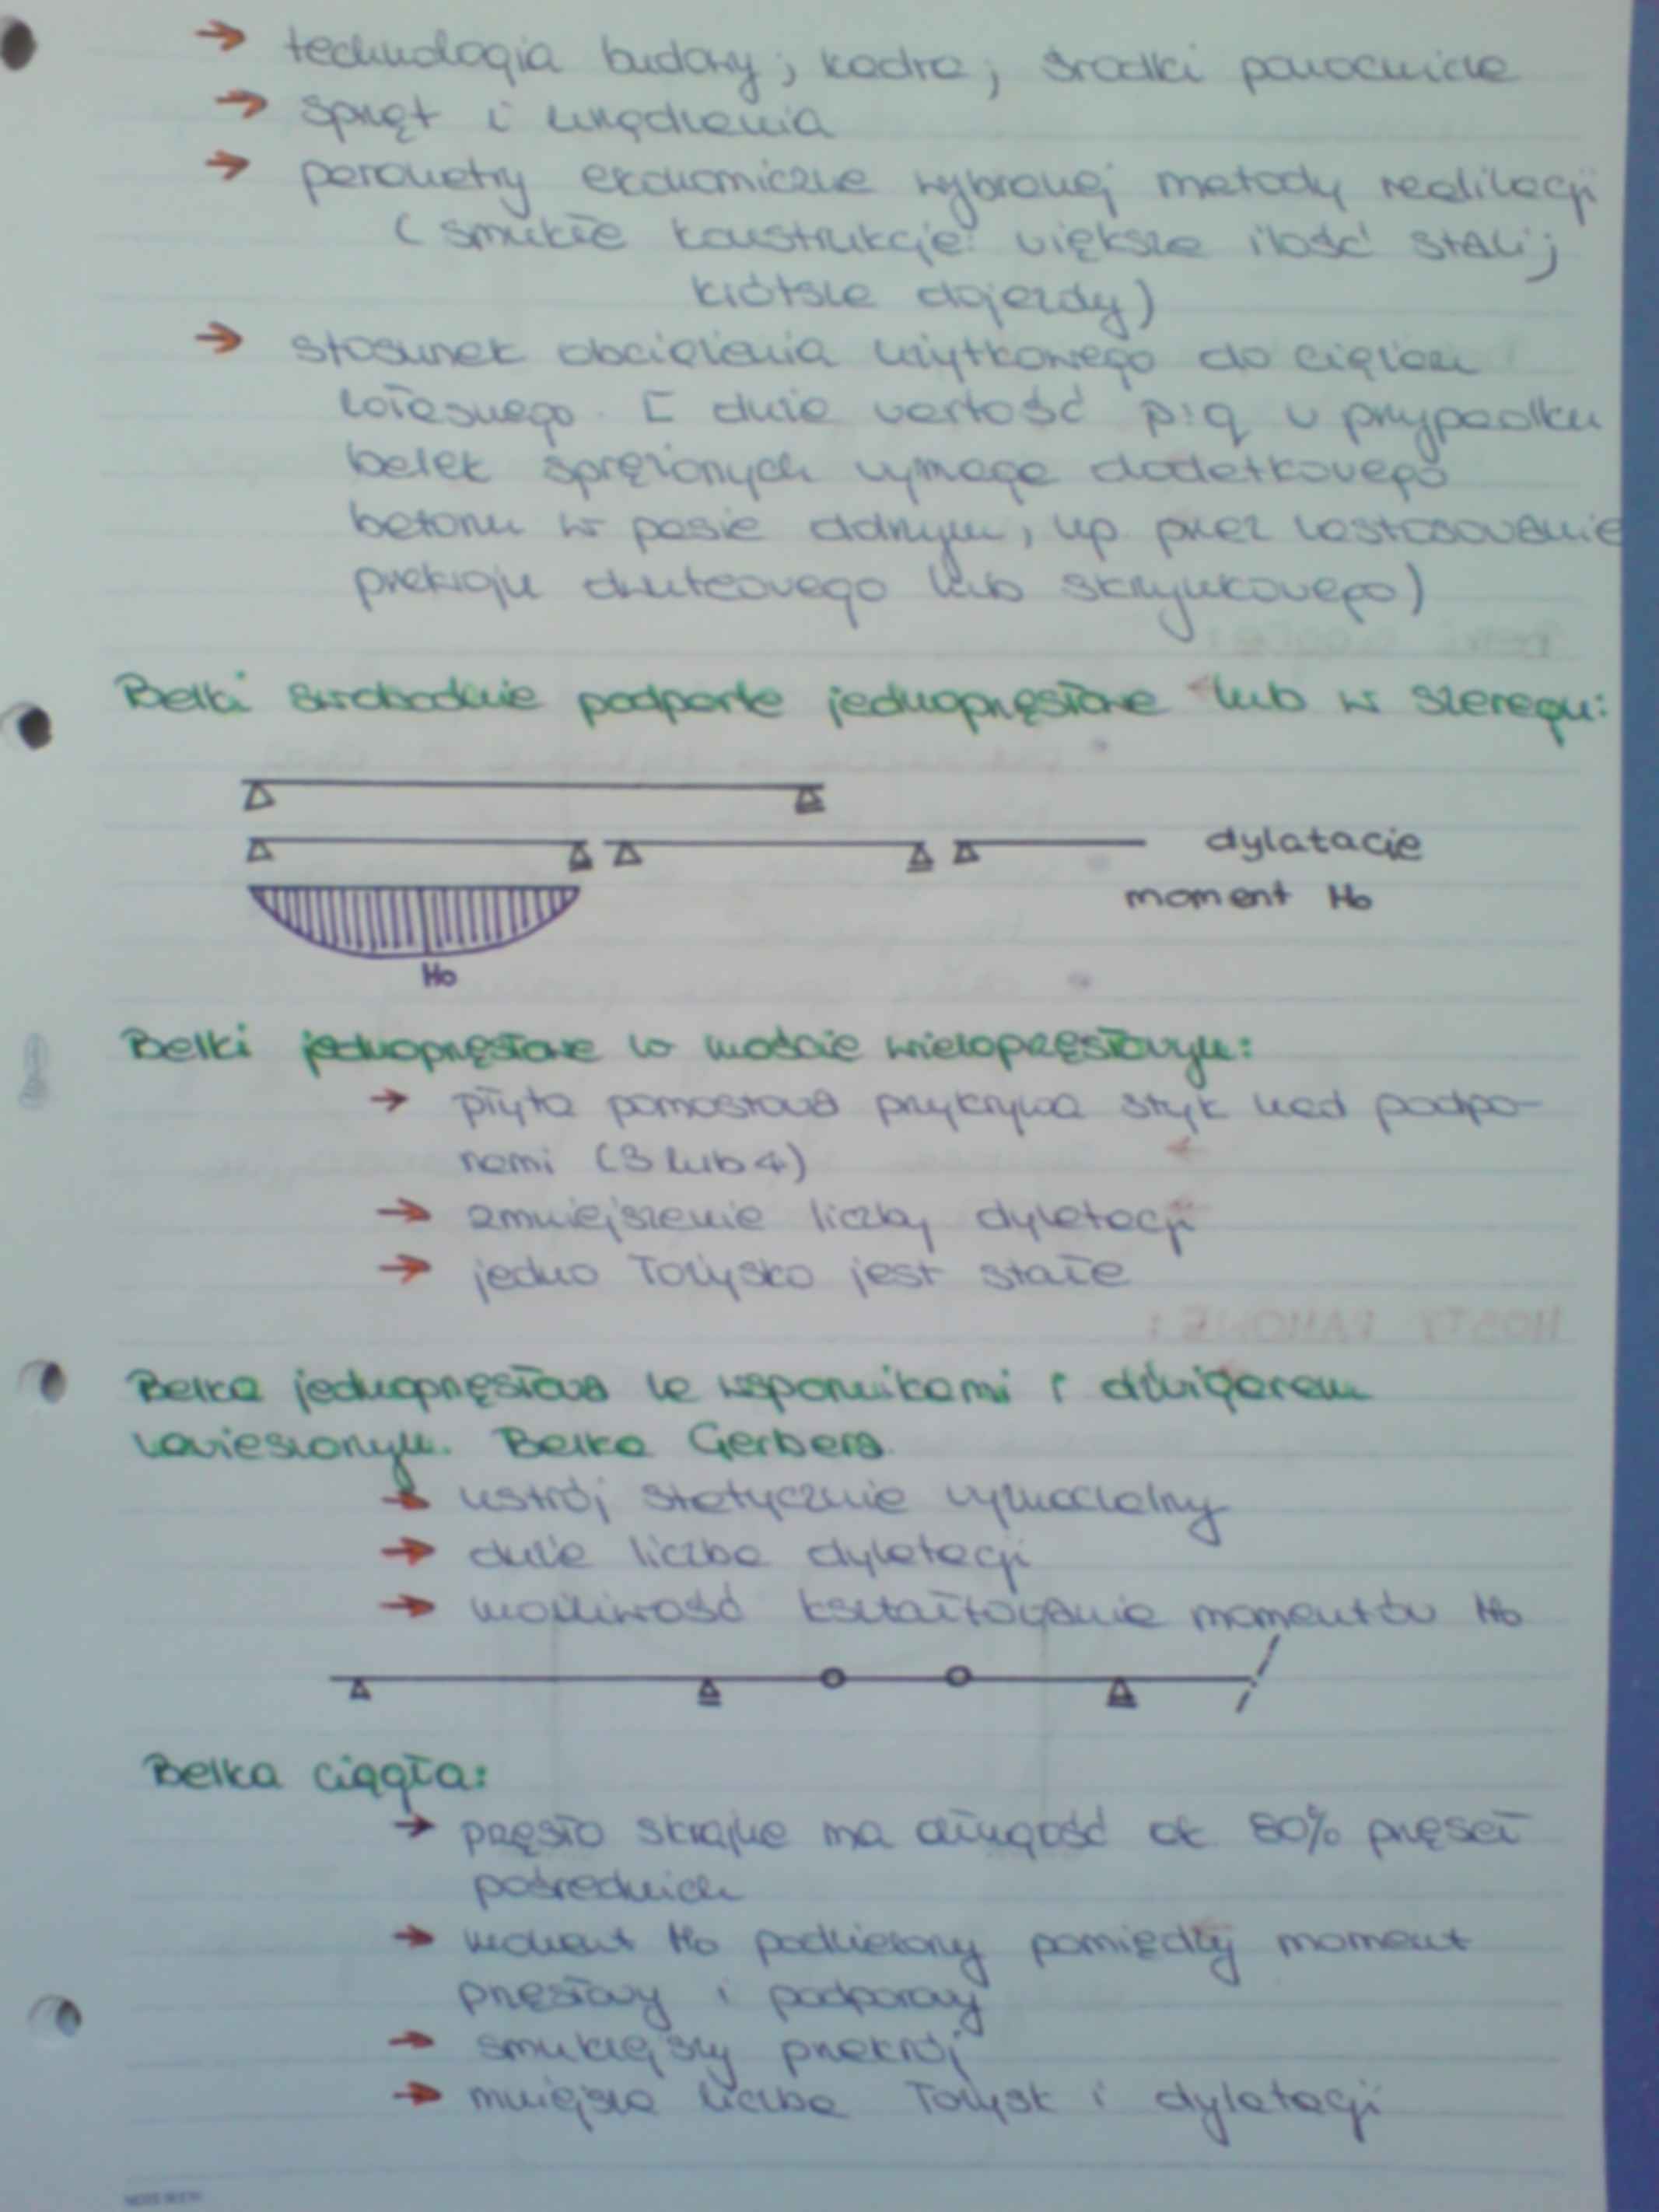 → technologia budowy; kadra; środki pomocnicze
→ sprzęt i urządzenia
→ parametry ekonomiczne wybranej metody realizacji
(smukłe konstrukcje: większe ilość stali;
krótsze dojazdy)
→ stosunek obciążenia użytkowego do ciężaru
własnego. [ duża wartość p:q w przypadku
belek sprężonych wymaga dodatkowego
betonu w pasie dolnym, np. przez zastosowanie
przekroju dwuteowego lub skrzynkowego)
Belki swobodnie podparte jednoprzęsłowe lub w szeregu:
dylatacje
moment M₀
M₀
Belki jednoprzęsłowe w moście wieloprzęsłowym:
→ płyta pomostowa przykrywa styk nad podpo-
rami (3 lub 4)
→ zmniejszenie liczby dylatacji
→ jedno łożysko jest stałe
Belka jednoprzęsłowa ze wspornikami i dźwigarem
zawieszonym. Belka Gerbera.
→ ustrój statycznie wyznaczalny
→ duża liczba dylatacji
→ możliwość kształtowania momentów M₀
Belka ciągła:
→ przęsło skrajne ma długość ok. 80% przęseł
pośrednich
→ moment M₀ podzielony pomiędzy moment
przęsłowy i podporowy
→ smuklejszy przekrój
→ mniejsza liczba łożysk i dylatacji